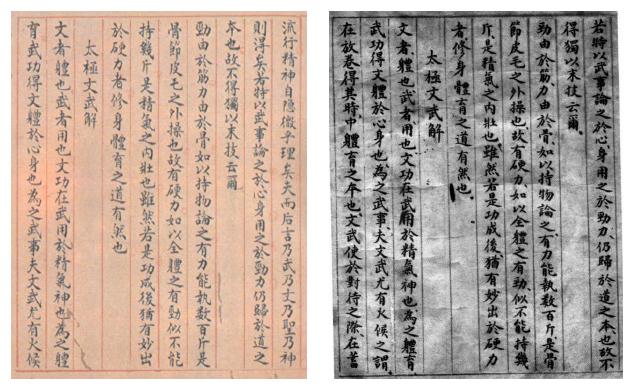 流行精神自隐微乎理矣夫而后言乃武乃文乃聖乃神
則得矣若特以武事論之於心身用之於勁力仍歸於道之
本也故不得獨以末技云爾
勁由於筋力由於骨如以持物論之有力能執数百斤是
骨節皮毛之外操也故有硬力如以全體之有勁似不能
持幾斤是精氣之內壯也雖然若是功成後猶有妙出
於硬力者修身體育之道有然也
太極文武解
文者體也武者用也文功在武用於精氣神也為之體
育武功得文體於心身也為之武事夫文武尤有火候
若特以武事論之於心身用之於勁力仍歸於道之本也故不
得獨以末技云爾
勁由於筋力由於骨如以持物論之有力能執数百斤是骨
節皮毛之外操也故有硬力如以全體之有勁似不能持幾
斤是精氣之內壯也雖然若是功成後猶有妙出於硬力
者修身體育之道有然也
太極文武解
文者體也武者用也文功在武用於精氣神也為之體育
武功得文體於心身也為之武事夫文武尤有火候之謂
在放卷得其時中體育之本也文武使於對待之際在蓄